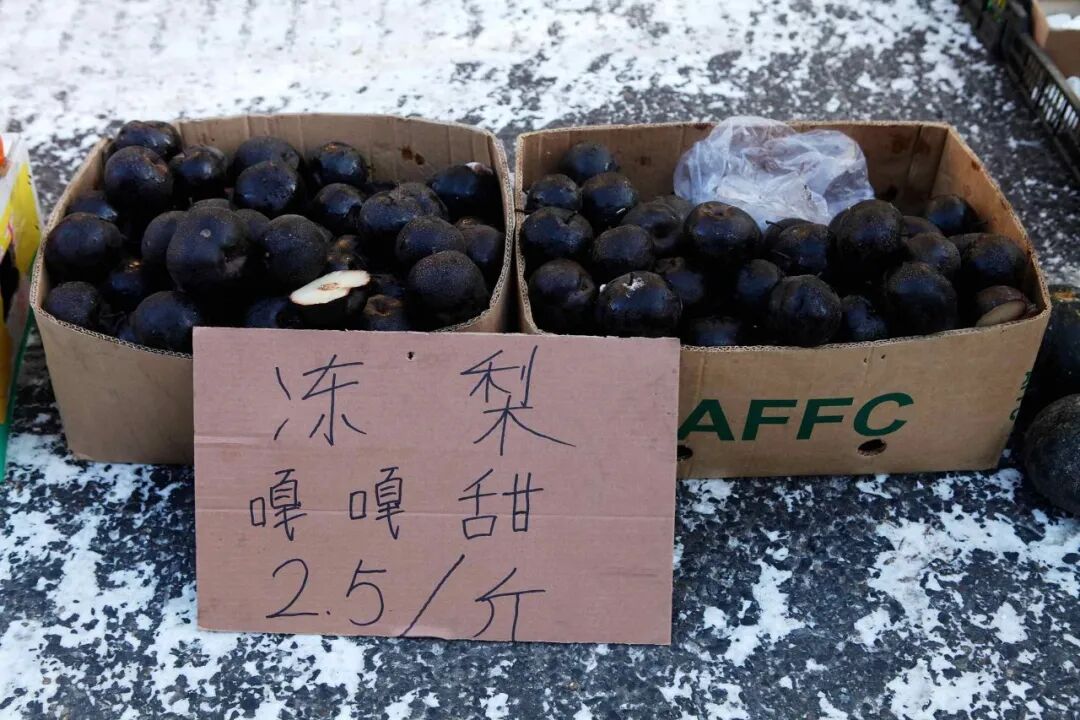 冻 梨
嘎嘎 甜
2.5/斤
AFFC